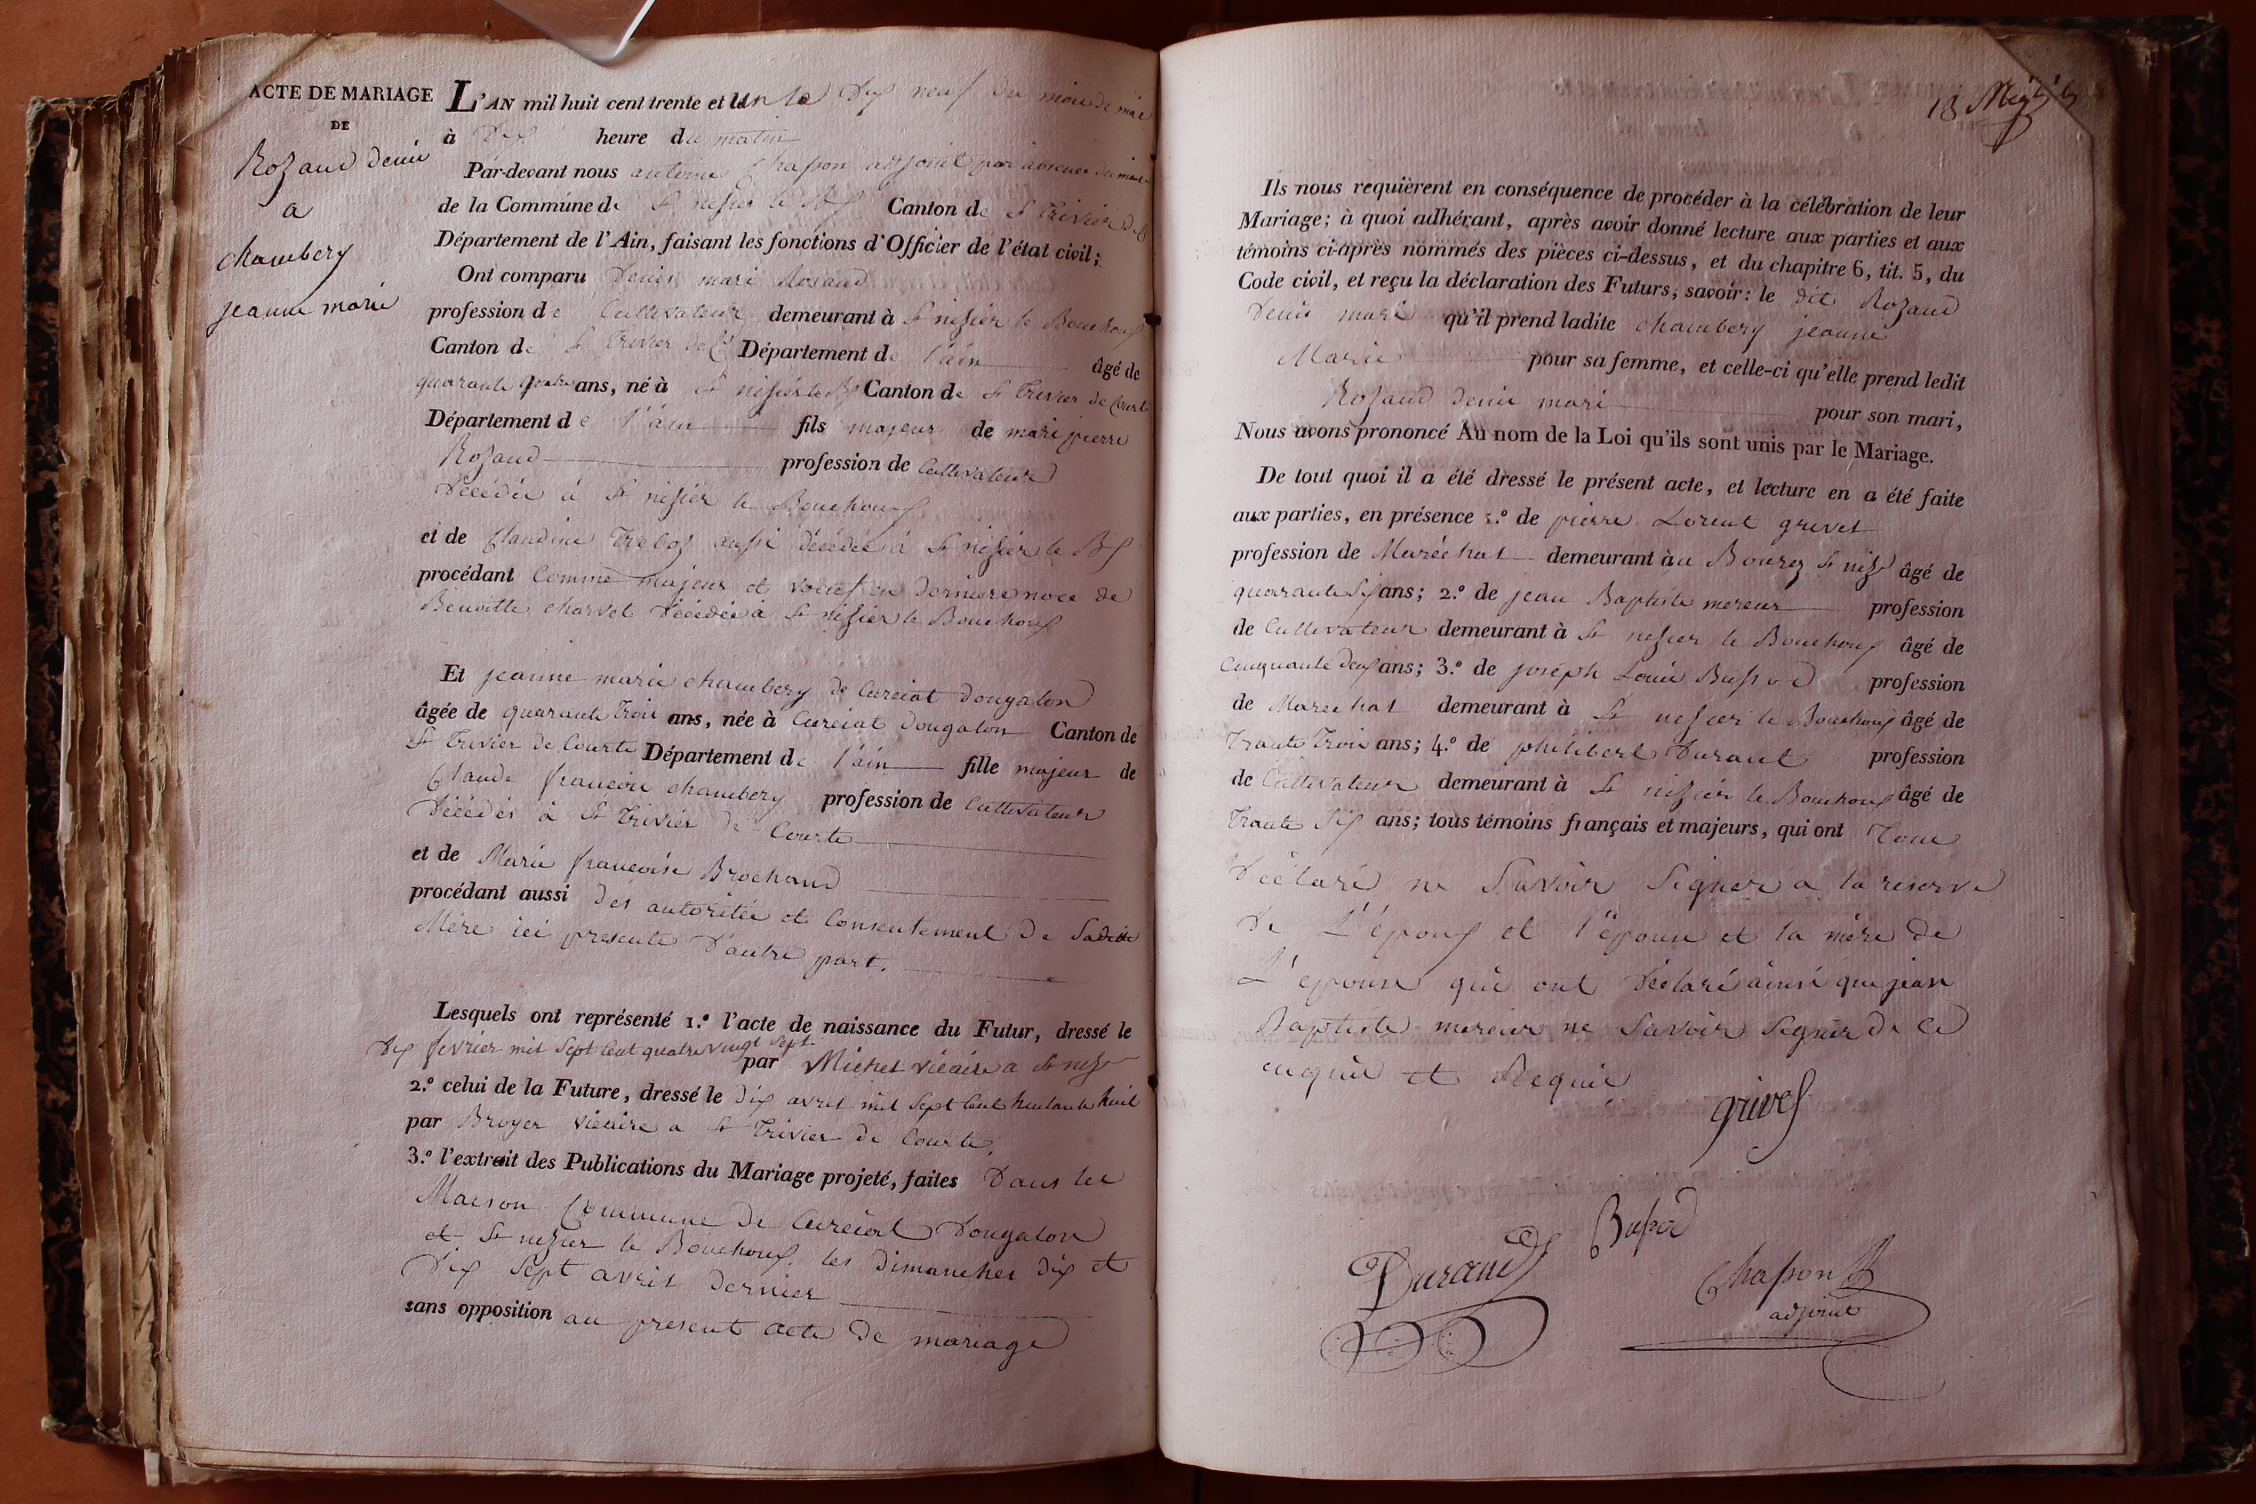 ACTE DE MARIAGE
DE
Rozand denis
a
chambery
jeanne marie
L'AN mil huit cent trente et un le Dix neuf du mois de mai
à Dix heure du matin
Par-devant nous antoine Chapon adjoint par absence du maire
de la Commune de St nisier le Bx Canton de St Trivier de Cte
Département de l'Ain, faisant les fonctions d'Officier de l'état civil;
Ont comparu Denis mari Rozand
profession de Cultivateur demeurant à St nisier le Bouchoux
Canton de St Trivier de Ct Département de l'ain âgé de
quarante quatre ans, né à St nisier le Bx Canton de St Trivier de Courte
Département de l'ain fils majeur de mari pierre
Rozand profession de Cultivateur
Décédée à St nisier le Bouchoux
et de Claudine Treboz aussi décédée à St nizier le Bx
procédant Comme majeur et veuf en derniere noce de
Benoitte charvet Décédée à St nisier le Bouchoux
Et jeanne marie chambery de Curciat dongalon
âgée de quarante Trois ans, née à Curciat dongalon Canton de
St Trivier de Courte Département de l'ain fille majeur de
Claude francois chambery profession de Cultivateur
Décédés à St Trivier de Courte
et de Marie francoise Brochand
procédant aussi des autoritée et Consentement de Sadite
Mère ici presente D'autre part.
Lesquels ont représenté 1.º l'acte de naissance du Futur, dressé le
Dix fevrier mil Sept Cent quatre vingt sept
par Michel vicaire a St niz
2.º celui de la Future, dressé le dix avril mil Sept Cent huitante huit
par Broyer vicaire a St Trivier de Courte,
3.º l'extrait des Publications du Mariage projeté, faites Dans les
Maison Commune de Curciat Dongalon
et St nizier le Bouchoux les Dimanches dix et
Dix Sept avril dernier
sans opposition au present acte de mariage
13
Ils nous requièrent en conséquence de procéder à la célébration de leur
Mariage; à quoi adhérant, après avoir donné lecture aux parties et aux
témoins ci-après nommés des pièces ci-dessus, et du chapitre 6, tit. 5, du
Code civil, et reçu la déclaration des Futurs, savoir: le dit Rozand
Denis mari qu'il prend ladite chambery jeanne
Marie pour sa femme, et celle-ci qu'elle prend ledit
Rozand denis mari pour son mari,
Nous avons prononcé Au nom de la Loi qu'ils sont unis par le Mariage.
De tout quoi il a été dressé le présent acte, et lecture en a été faite
aux parties, en présence 1.º de pierre Lorent grivet
profession de Maréchal demeurant àu Bourg St niz âgé de
quarante Six ans; 2.º de jean Baptiste mereur profession
de Cultivateur demeurant à St nisier le Bouchoux âgé de
Cinquante deux ans; 3.º de joseph Louis Bussod profession
de Marechal demeurant à St nisier le Bouchoux âgé de
Trante Trois ans; 4.º de philibert Durant profession
de Cultivateur demeurant à St nisier le Bouchoux âgé de
Trante Six ans; tous témoins français et majeurs, qui ont Tous
Déclaré ne Savoir Signer a la reserve
De L'époux et l'épouse et la mère de
L'epouse qui ont déclaré ainsi que jean
Baptiste mereur ne Savoir Signer de Ce
enquis et Requis
grivet
Bussod
Durand
Chapon
adjoint